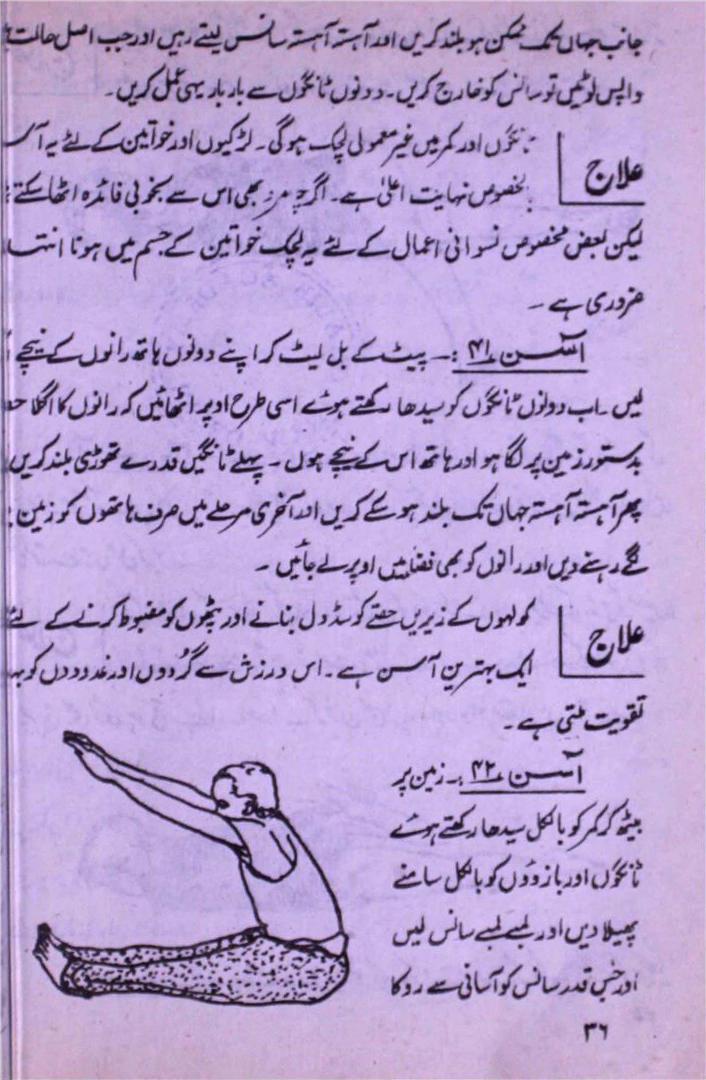 جانب جہاں تک ممکن ہو بلند کریں اور آہستہ آہستہ سانس لیتے رہیں اور جب اصل حالت
واپس لوٹیں تو سانس کو خارج کریں۔ دونوں ٹانگوں سے بار بار یہی عمل کریں۔
علاج
ٹانگوں اور کمر میں غیر معمولی لچک ہوگی۔ لڑکیوں اور خواتین کے لئے یہ آسن
بخصوص نہایت اعلیٰ ہے۔ اگرچہ مرد بھی اس سے بخوبی فائدہ اٹھا سکتے
لیکن بعض مخصوص نسوانی اعمال کے لئے یہ لچک خواتین کے جسم میں ہونا انتہا
ضروری ہے ۔
آسن ۴۱ :۔ پیٹ کے بل لیٹ کر اپنے دونوں ہاتھ رانوں کے نیچے
لیں ۔ اب دونوں ٹانگوں کو سیدھا رکھتے ہوئے اسی طرح اوپر اٹھائیں کہ رانوں کا اگلا حصہ
بدستور زمین پر لگا ہو اور ہاتھ اس کے نیچے ہوں ۔ پہلے ٹانگیں قدرے تھوڑی بلند کریں
پھر آہستہ آہستہ جہاں تک بلند ہو سکے کریں اور آخری مرحلے میں صرف ہاتھوں کو زمین
لگے رہنے دیں اور رانوں کو بھی فضا میں اوپر لے جائیں ۔
علاج
کولہوں کے زیریں حصے کو سڈول بنانے اور پٹھوں کو مضبوط کرنے کے لئے
ایک بہترین آسن ہے ۔ اس ورزش سے گردوں اور غدودوں کو
تقویت ملتی ہے ۔
آسن ۴۲ :۔ زمین پر
بیٹھ کر کمر کو بالکل سیدھا رکھتے ہوئے
ٹانگوں اور بازوؤں کو بالکل سامنے
پھیلا دیں اور لمبے لمبے سانس لیں
اور جس قدر سانس کو آسانی سے روکا
۳۶